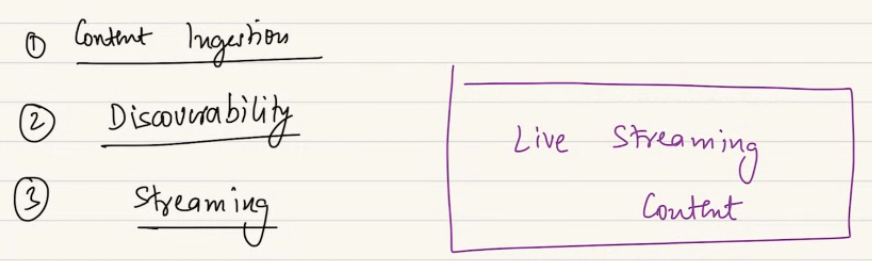 ① Content Ingestion
② Discoverability
③ Streaming
Live Streaming
Content